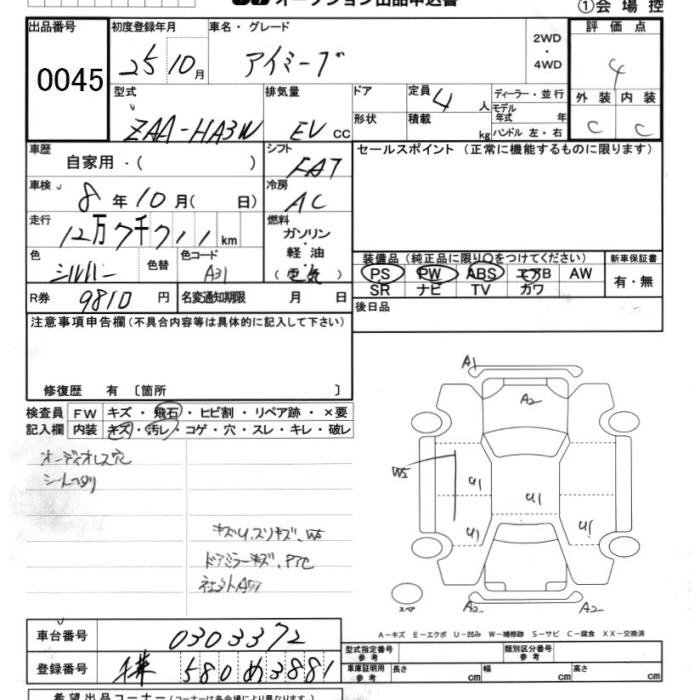 オークション出品申込書 ①会場控
出品番号 初度登録年月 車名・グレード 2WD・4WD 評価点
0045 25 10月 アイミーブ 4
型式 排気量 ドア 定員 4 人 ディーラー・並行 外装 内装
ZAA-HA3W EV CC 形状 積載 kg モデル年式 年 ハンドル 左・右 C C
車歴 自家用・( ) シフト FAT セールスポイント (正常に機能するものに限ります)
車検 8年10月( 日) 冷房 AC
走行 12万7千711km 燃料 ガソリン・軽油(電気)
色 シルバー 色替 色コード A31
装備品(純正品に限り○をつけてください) 新車保証書
PS PW ABS エアB AW 有・無
SR ナビ TV カワ
R券 9810円 名変通知期限 月 日 後日品
注意事項申告欄(不具合内容等は具体的に記入して下さい)
修復歴 有〔箇所 〕
検査員 FW キズ・飛石・ヒビ割・リペア跡・×要
記入欄 内装 キズ・汚レ・コゲ・穴・スレ・キレ・破レ
オーディオレス穴
シートヘタリ
キズU,スリキズ,W5
ドアミラーキズ,
A1
A2
W5 U1 U1
U1 U1
スペア A2 A2
A-キズ E-エクボ U-凹み W-補修跡 S-サビ C-腐食 XX-交換済
車台番号 0303372
登録番号 580 め 3881
型式指定番号 類別区分番号
車庫証明用参考 長さ cm 幅 cm 高さ cm
希望出品コーナー(コーナーは各会場により異なります)